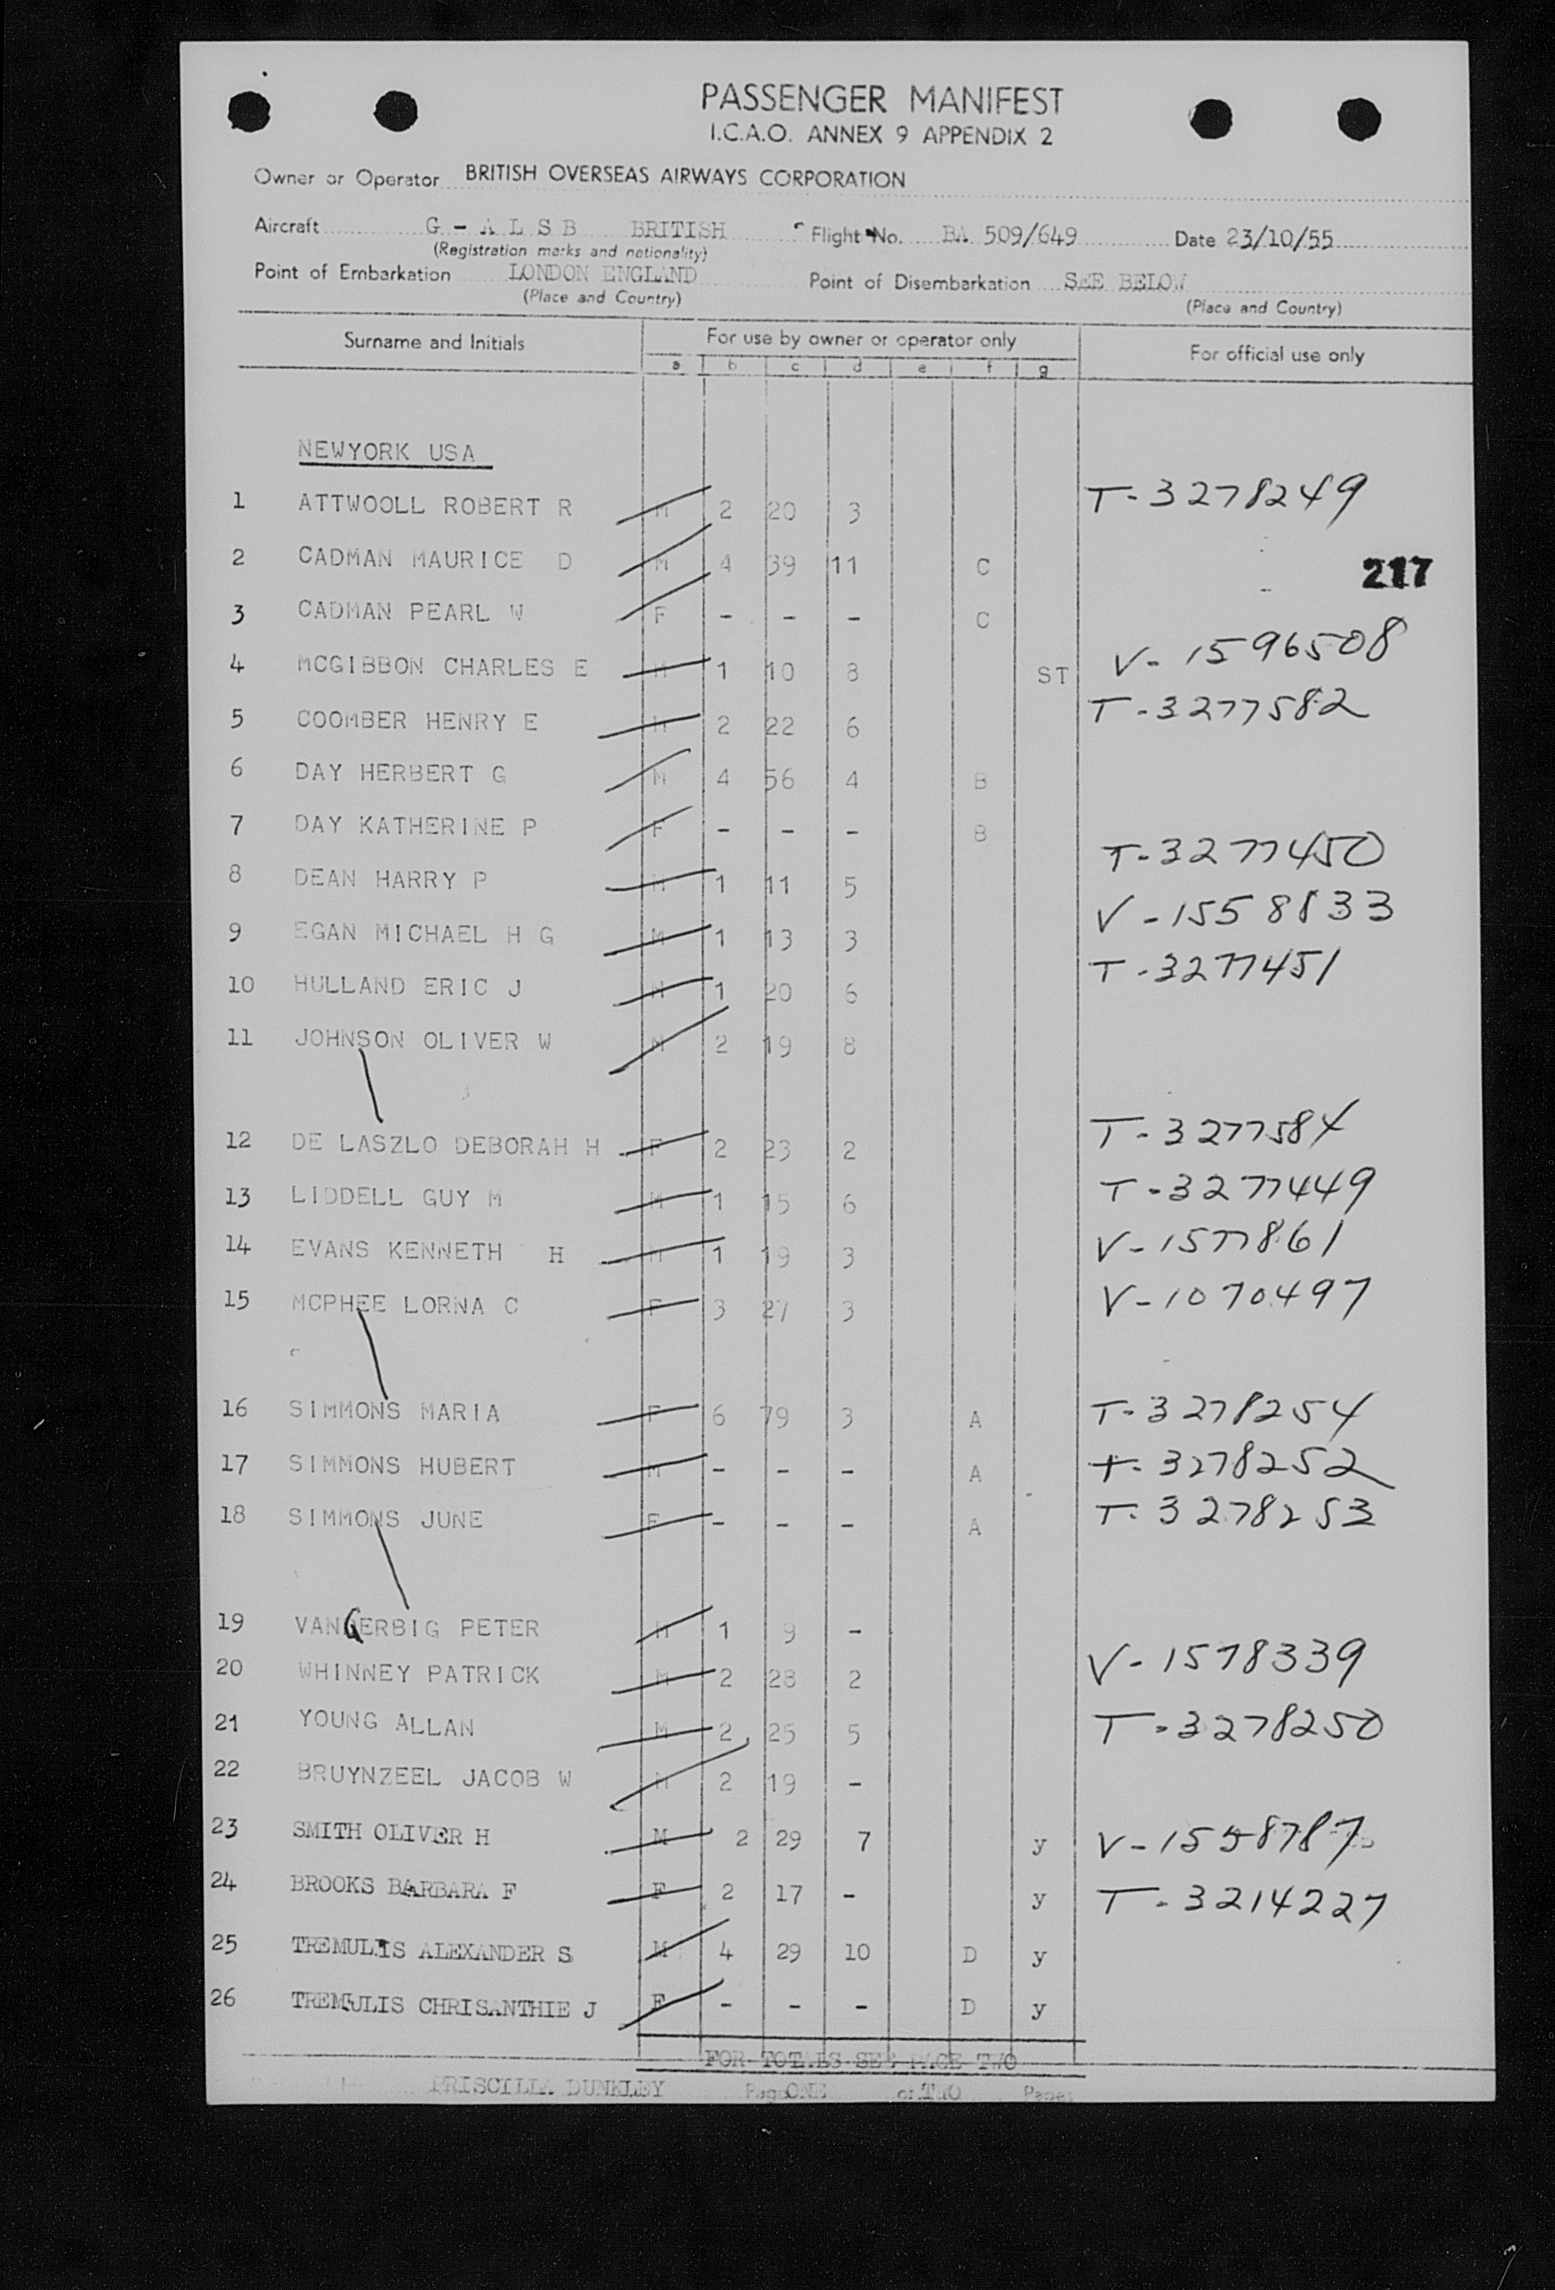 PASSENGER MANIFEST
I.C.A.O. ANNEX 9 APPENDIX 2
Owner or Operator BRITISH OVERSEAS AIRWAYS CORPORATION
Aircraft G - A L S B BRITISH Flight No. BA 509/649 Date 23/10/55
(Registration marks and nationality)
Point of Embarkation LONDON ENGLAND Point of Disembarkation SEE BELOW
(Place and Country) (Place and Country)
Surname and Initials For use by owner or operator only For official use only
a b c d e f g
NEWYORK USA
1 ATTWOOLL ROBERT R M 2 20 3 T-3278249
2 CADMAN MAURICE D M 4 39 11 C
217
3 CADMAN PEARL W F - - - C
4 MCGIBBON CHARLES E M 1 10 8 ST V-1596508
5 COOMBER HENRY E M 2 22 6 T-3277582
6 DAY HERBERT G M 4 56 4 B
7 DAY KATHERINE P F - - - B
8 DEAN HARRY P M 1 11 5 T-3277450
9 EGAN MICHAEL H G M 1 13 3 V-1558833
10 HULLAND ERIC J M 1 20 6 T-3277451
11 JOHNSON OLIVER W M 2 19 8
12 DE LASZLO DEBORAH H F 2 23 2 T-3277584
13 LIDDELL GUY M M 1 15 6 T-3277449
14 EVANS KENNETH H M 1 19 3 V-1577861
15 MCPHEE LORNA C F 3 27 3 V-1070497
16 SIMMONS MARIA F 6 79 3 A T-3278254
17 SIMMONS HUBERT M - - - A T-3278252
18 SIMMONS JUNE F - - - A T-3278253
19 VANGERBIG PETER M 1 9 -
20 WHINNEY PATRICK M 2 28 2 V-1578339
21 YOUNG ALLAN M 2 25 5 T-3278250
22 BRUYNZEEL JACOB W M 2 19 -
23 SMITH OLIVER H M 2 29 7 y V-1558787
24 BROOKS BARBARA F F 2 17 - y T-3214227
25 TREMULIS ALEXANDER S M 4 29 10 D y
26 TREMULIS CHRISANTHIE J F - - - D y
FOR TOTALS SEE PAGE TWO
PRISCILLA DUNKLEY Page ONE of TWO Pages